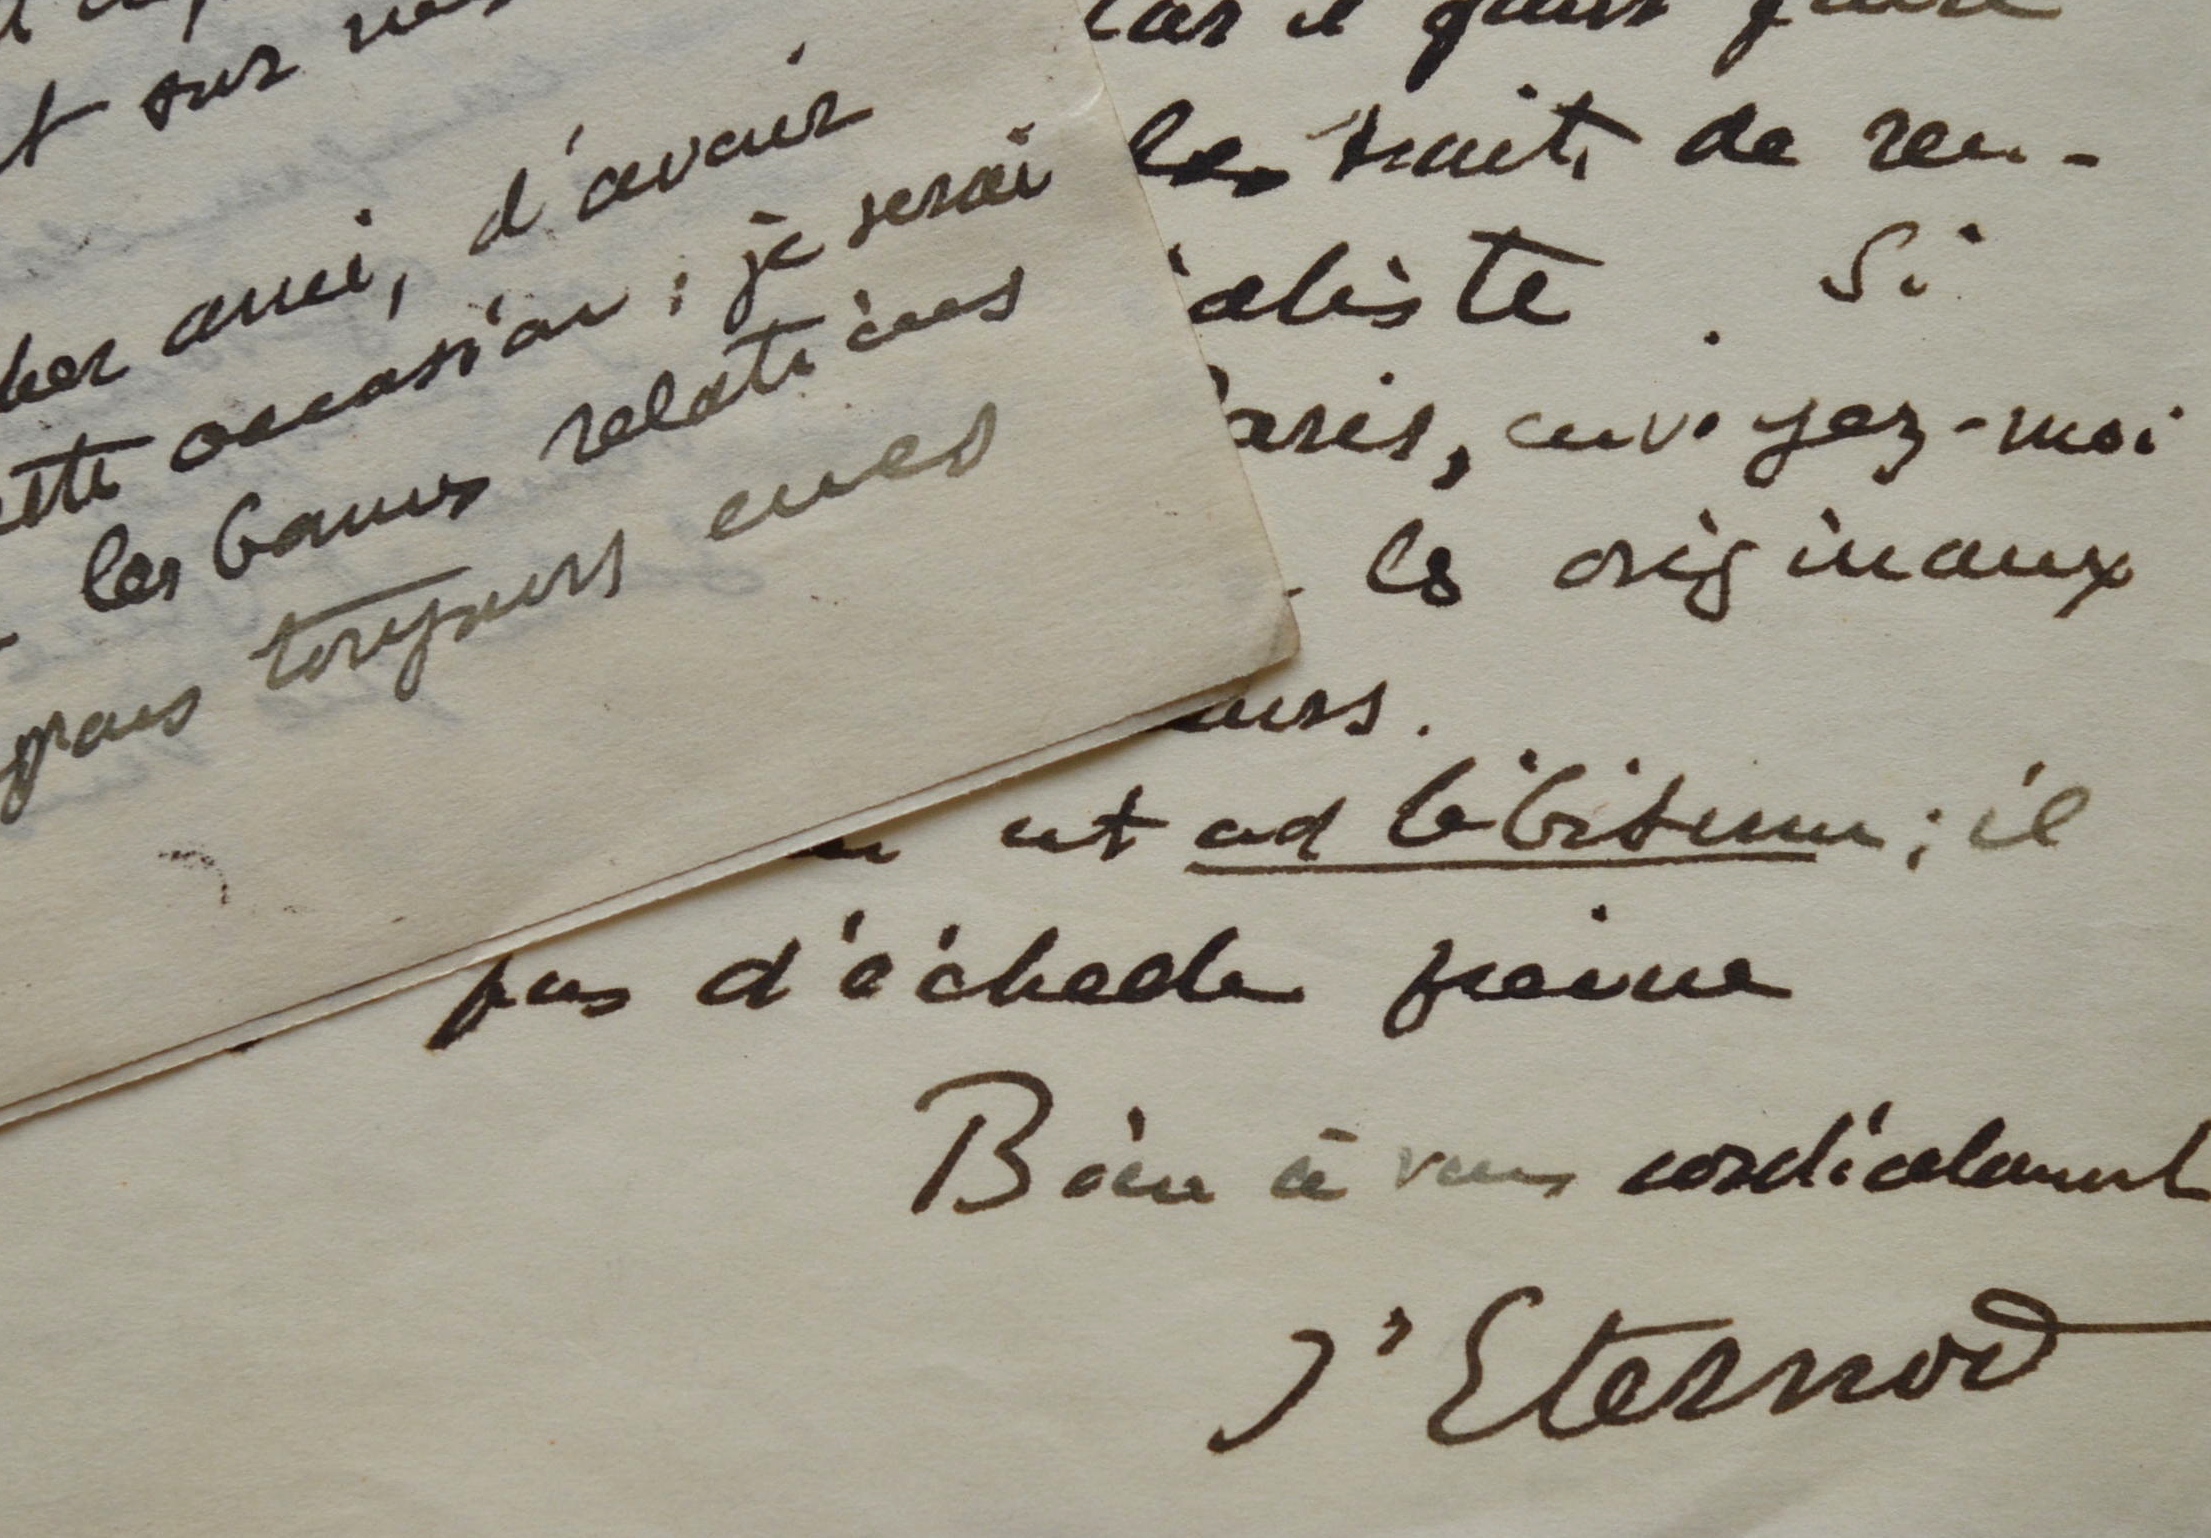 t sur
cher ami, d'avoir
cette occasion : je serai
les bonnes relations
toujours eues
car il faut faire
les traits de ren-
ialiste. Si
Paris, envoyez-moi
les originaux
eurs.
est ad libitum ; il
pas d'échelle
Bien à vous cordialement
Eternod